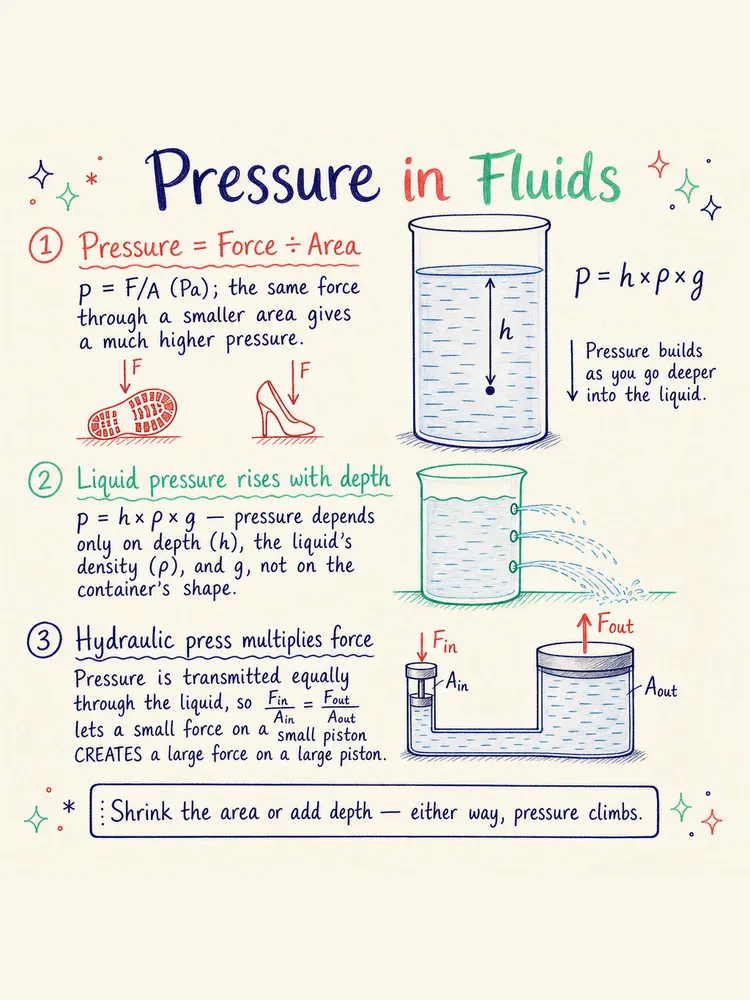 Pressure in Fluids
1 Pressure = Force ÷ Area
p = F/A (Pa); the same force
through a smaller area gives
a much higher pressure.
F
F
h
p = h × ρ × g
Pressure builds
as you go deeper
into the liquid.
2 Liquid pressure rises with depth
p = h × ρ × g — pressure depends
only on depth (h), the liquid's
density (ρ), and g, not on the
container's shape.
3 Hydraulic press multiplies force
Pressure is transmitted equally
through the liquid, so Fin/Ain = Fout/Aout
lets a small force on a small piston
CREATES a large force on a large piston.
Fin
Ain
Fout
Aout
Shrink the area or add depth — either way, pressure climbs.